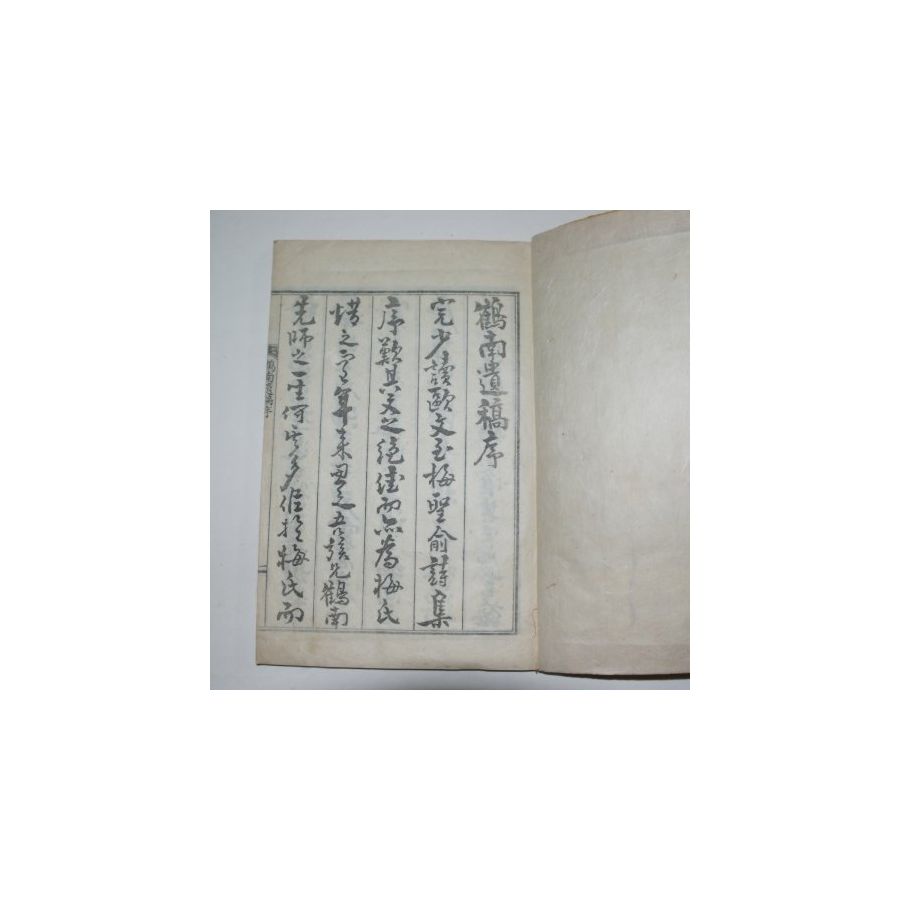 鶴南遺稿序
完少讀歐文至梅聖俞詩集
序歎其文之絕佳而亦為梅氏
惜之年來思之吾族兄鶴南
先師之一生何其多似於梅氏而
鶴南遺稿序